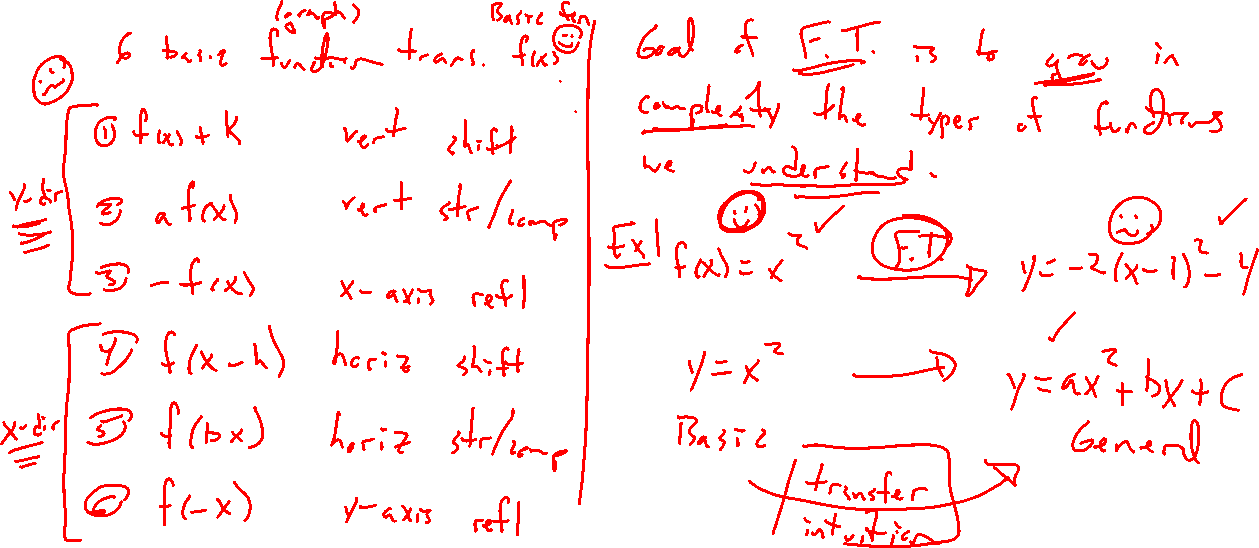 (graph)
Basic fcn
6 basic function trans. f(x)
y-dir
① f(x) + k vert shift
② a f(x) vert str/comp
③ -f(x) x-axis refl
x-dir
④ f(x-h) horiz shift
⑤ f(bx) horiz str/comp
⑥ f(-x) y-axis refl
Goal of F.T. is to grow in
complexity the types of functions
we understand.
Ex1 f(x) = x² ✓ F.T. → y = -2(x-1)² - 4 ✓
y = x² → y = ax² + bx + c ✓
Basic General
transfer
intuition